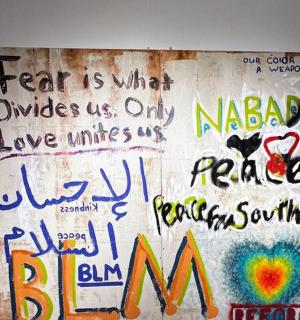 Fear is what
Divides us. Only
Love unites us.
OUR COLOR
A WEAPO
NABAD
Peace
Peace
الإحسان
Kindness
Peace for South
السلام
peace
BLM
BLM